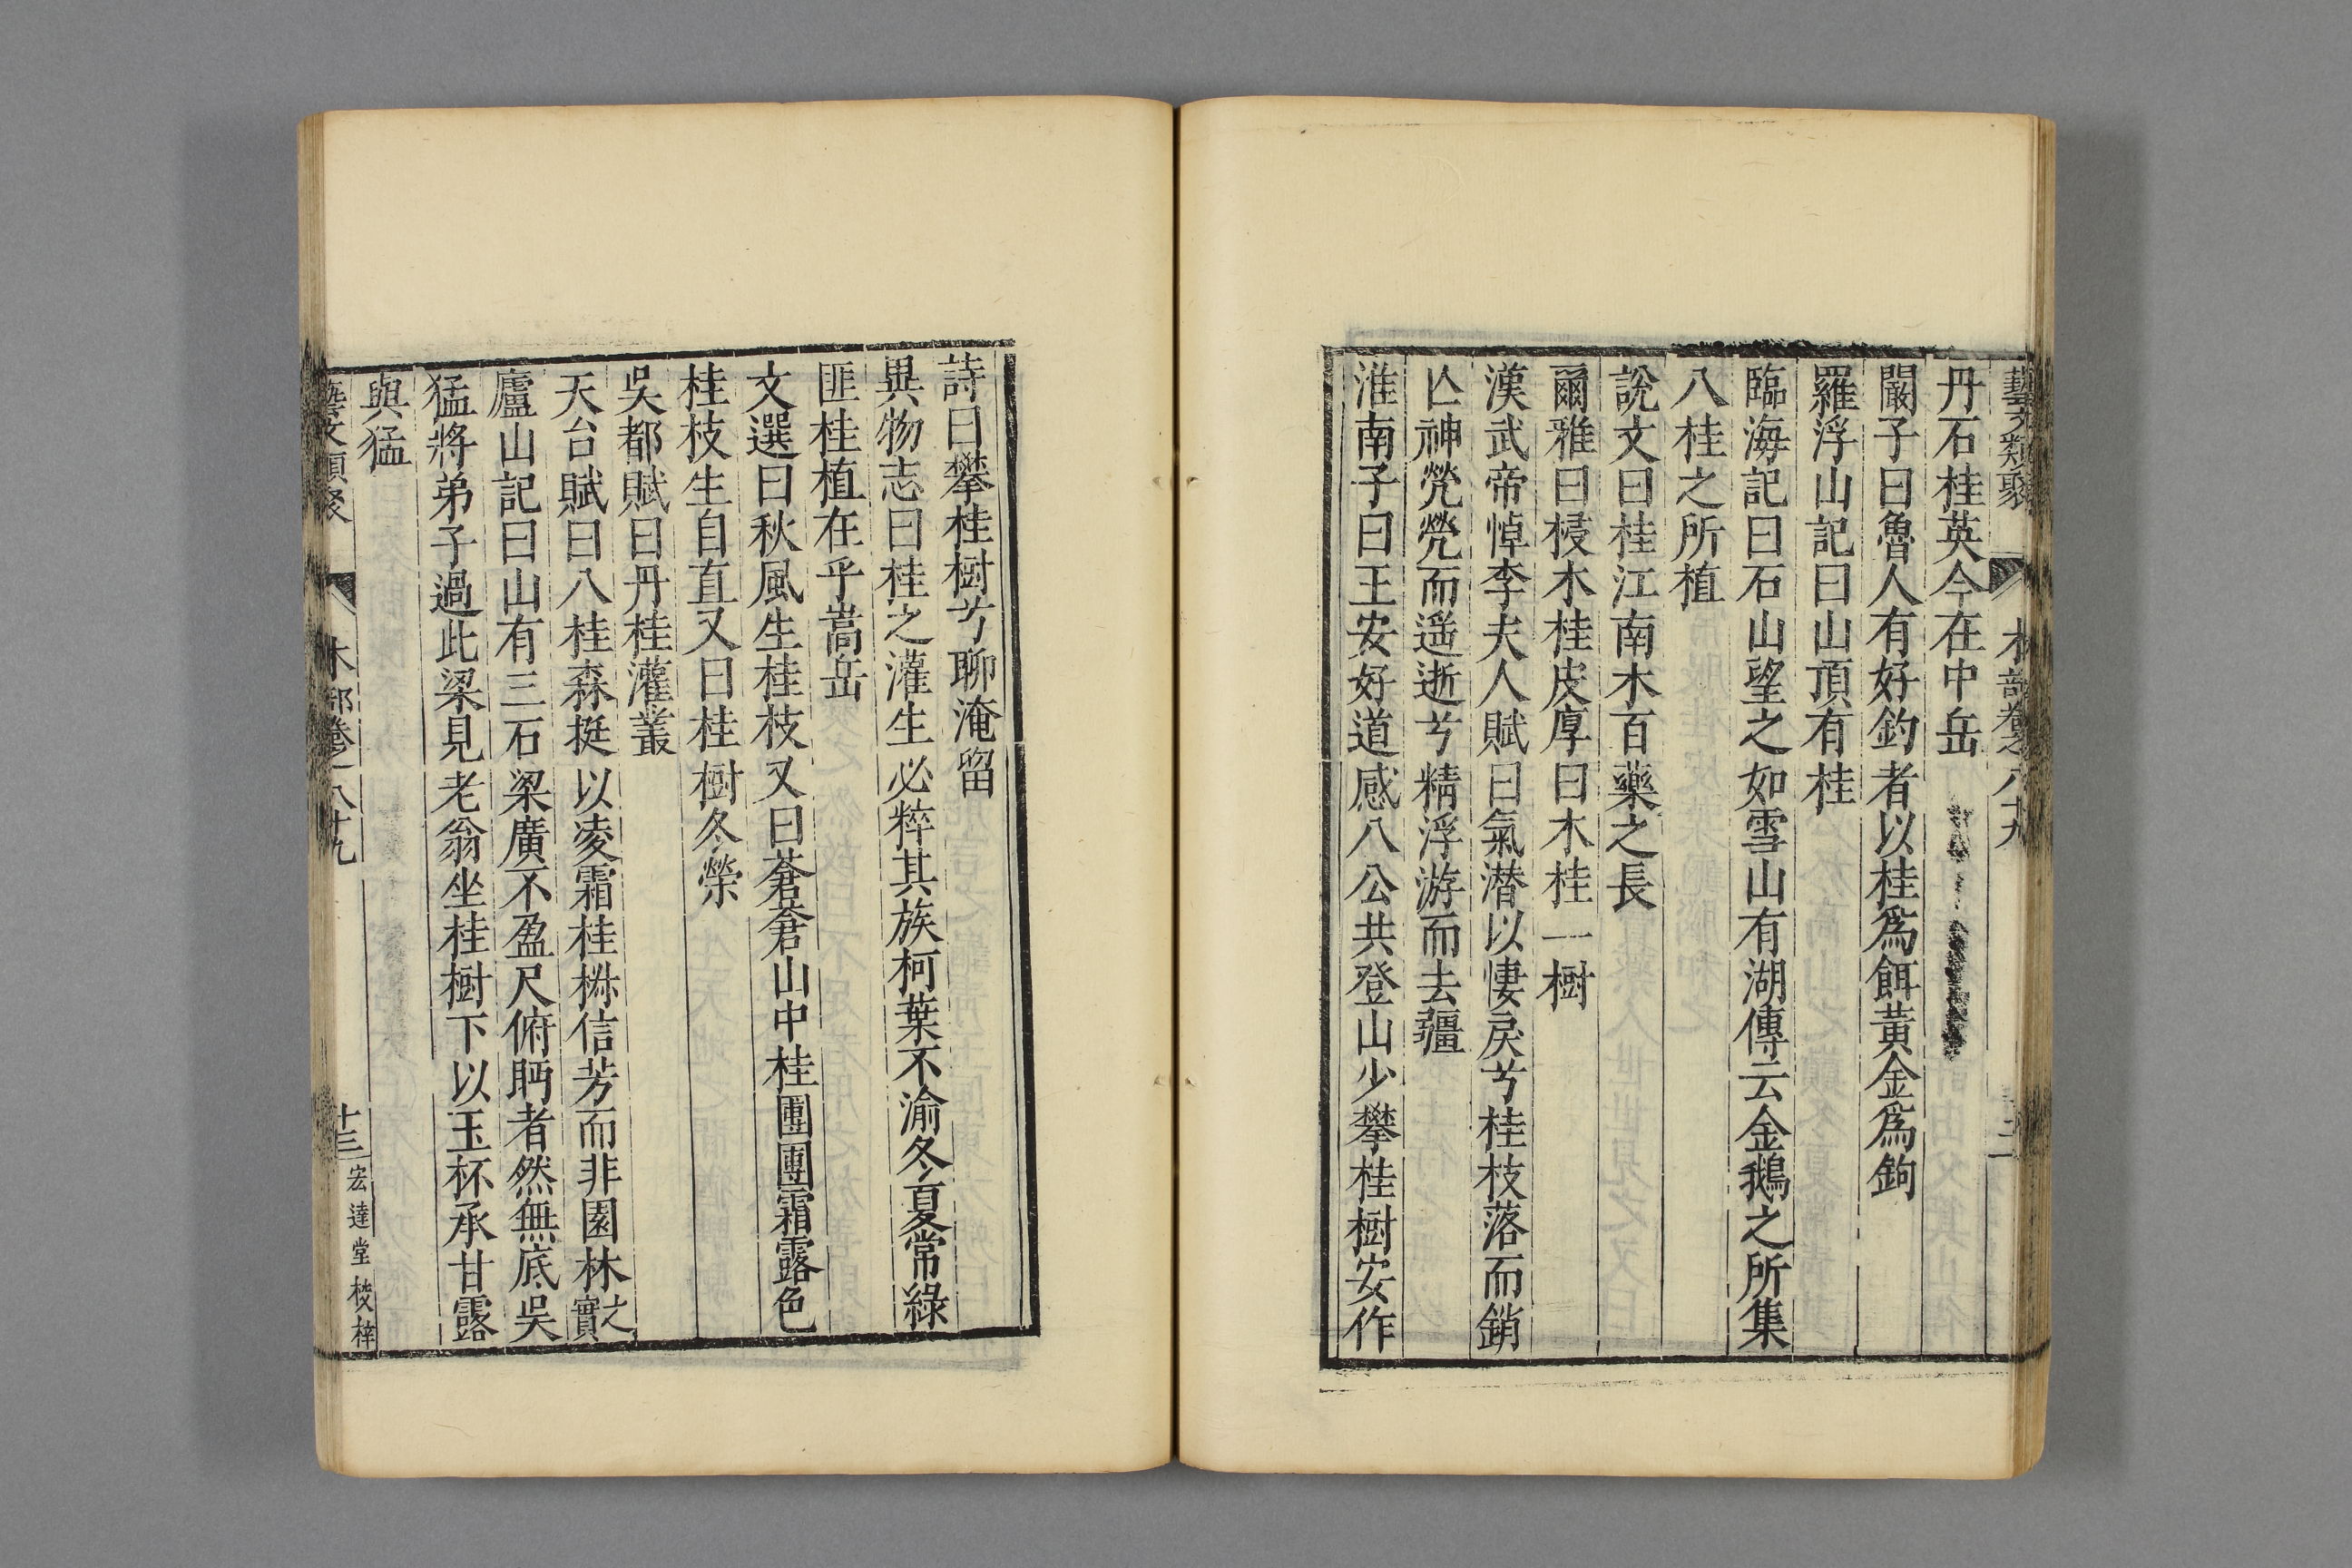 藝文類聚 木部卷之八十九 十二
丹石桂英今在中岳
闞子曰魯人有好釣者以桂爲餌黃金爲鉤
羅浮山記曰山頂有桂
臨海記曰石山望之如雪山有湖傳云金鵝之所集
八桂之所植
說文曰桂江南木百藥之長
爾雅曰梫木桂皮厚曰木桂一樹
漢武帝悼李夫人賦曰氣潜以悽戾兮桂枝落而銷
亾神焭焭而遥逝兮精浮游而去疆
淮南子曰王安好道感八公共登山少攀桂樹安作
詩曰攀桂樹兮聊淹留
異物志曰桂之灌生必粹其族柯葉不渝冬夏常綠
匪桂植在乎嵩岳
文選曰秋風生桂枝又曰蒼蒼山中桂團團霜露色
桂枝生自直又曰桂樹冬榮
吳都賦曰丹桂灌叢
天台賦曰八桂森挺以凌霜桂椕信芳而非園林之實
廬山記曰山有三石梁廣不盈尺俯眄者然無底吳
猛將弟子過此梁見老翁坐桂樹下以玉杯承甘露
與猛
藝文類聚 木部卷之八十九 十三 宏達堂校梓